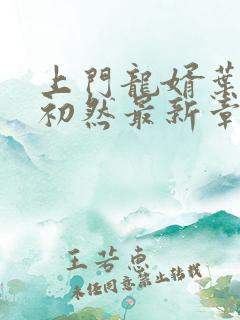 上門龍婿葉
初然最新章
王若惠
未经同意禁止转载